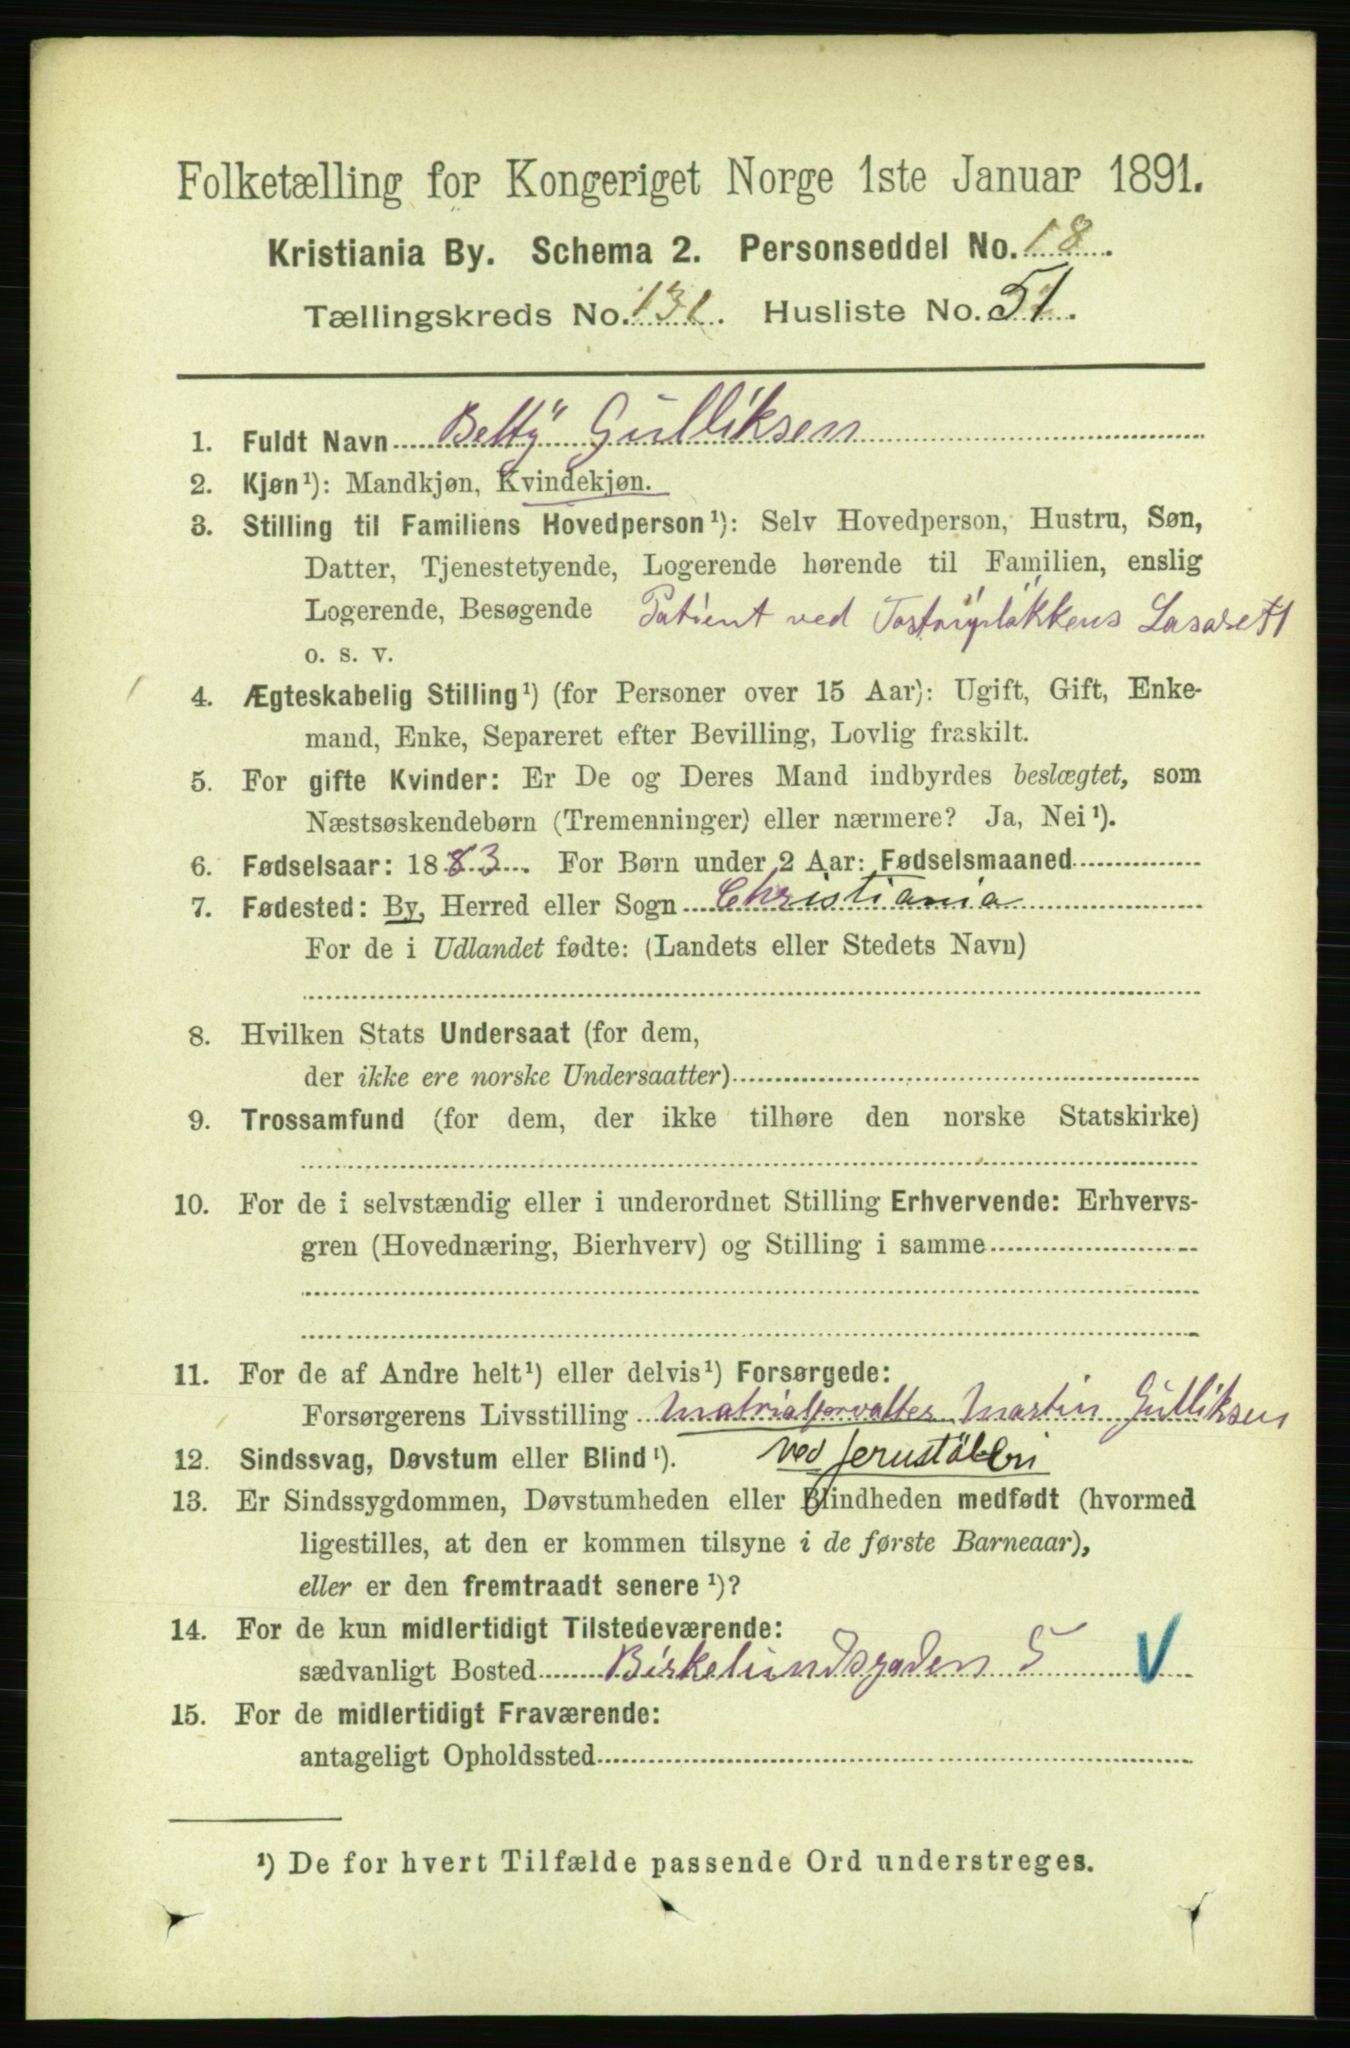 Folketælling for Kongeriget Norge 1ste Januar 1891.
Kristiania By. Schema 2. Personseddel No. 18.
Tællingskreds No. 131. Husliste No. 51.
1. Fuldt Navn Betty Gulliksen
2. Kjøn¹): Mandkjøn, Kvindekjøn.
3. Stilling til Familiens Hovedperson¹): Selv Hovedperson, Hustru, Søn,
Datter, Tjenestetyende, Logerende hørende til Familien, enslig
Logerende, Besøgende Patient ved Tostrupløkkens Lasarett
o. s. v.
4. Ægteskabelig Stilling¹) (for Personer over 15 Aar): Ugift, Gift, Enke-
mand, Enke, Separeret efter Bevilling, Lovlig fraskilt.
5. For gifte Kvinder: Er De og Deres Mand indbyrdes beslægtet, som
Næstsøskendebørn (Tremenninger) eller nærmere? Ja, Nei¹).
6. Fødselsaar: 1883. For Børn under 2 Aar: Fødselsmaaned
7. Fødested: By, Herred eller Sogn Christiania
For de i Udlandet fødte: (Landets eller Stedets Navn)
8. Hvilken Stats Undersaat (for dem,
der ikke ere norske Undersaatter)
9. Trossamfund (for dem, der ikke tilhøre den norske Statskirke)
10. For de i selvstændig eller i underordnet Stilling Erhvervende: Erhvervs-
gren (Hovednæring, Bierhverv) og Stilling i samme
11. For de af Andre helt¹) eller delvis¹) Forsørgede:
Forsørgerens Livsstilling Matrialforvalter Martin Gulliksen
12. Sindssvag, Døvstum eller Blind¹). ved
13. Er Sindssygdommen, Døvstumheden eller Blindheden medfødt (hvormed
ligestilles, at den er kommen tilsyne i de første Barneaar),
eller er den fremtraadt senere¹)?
14. For de kun midlertidigt Tilstedeværende:
sædvanligt Bosted Birkelundsgaden 5 V
15. For de midlertidigt Fraværende:
antageligt Opholdssted
¹) De for hvert Tilfælde passende Ord understreges.